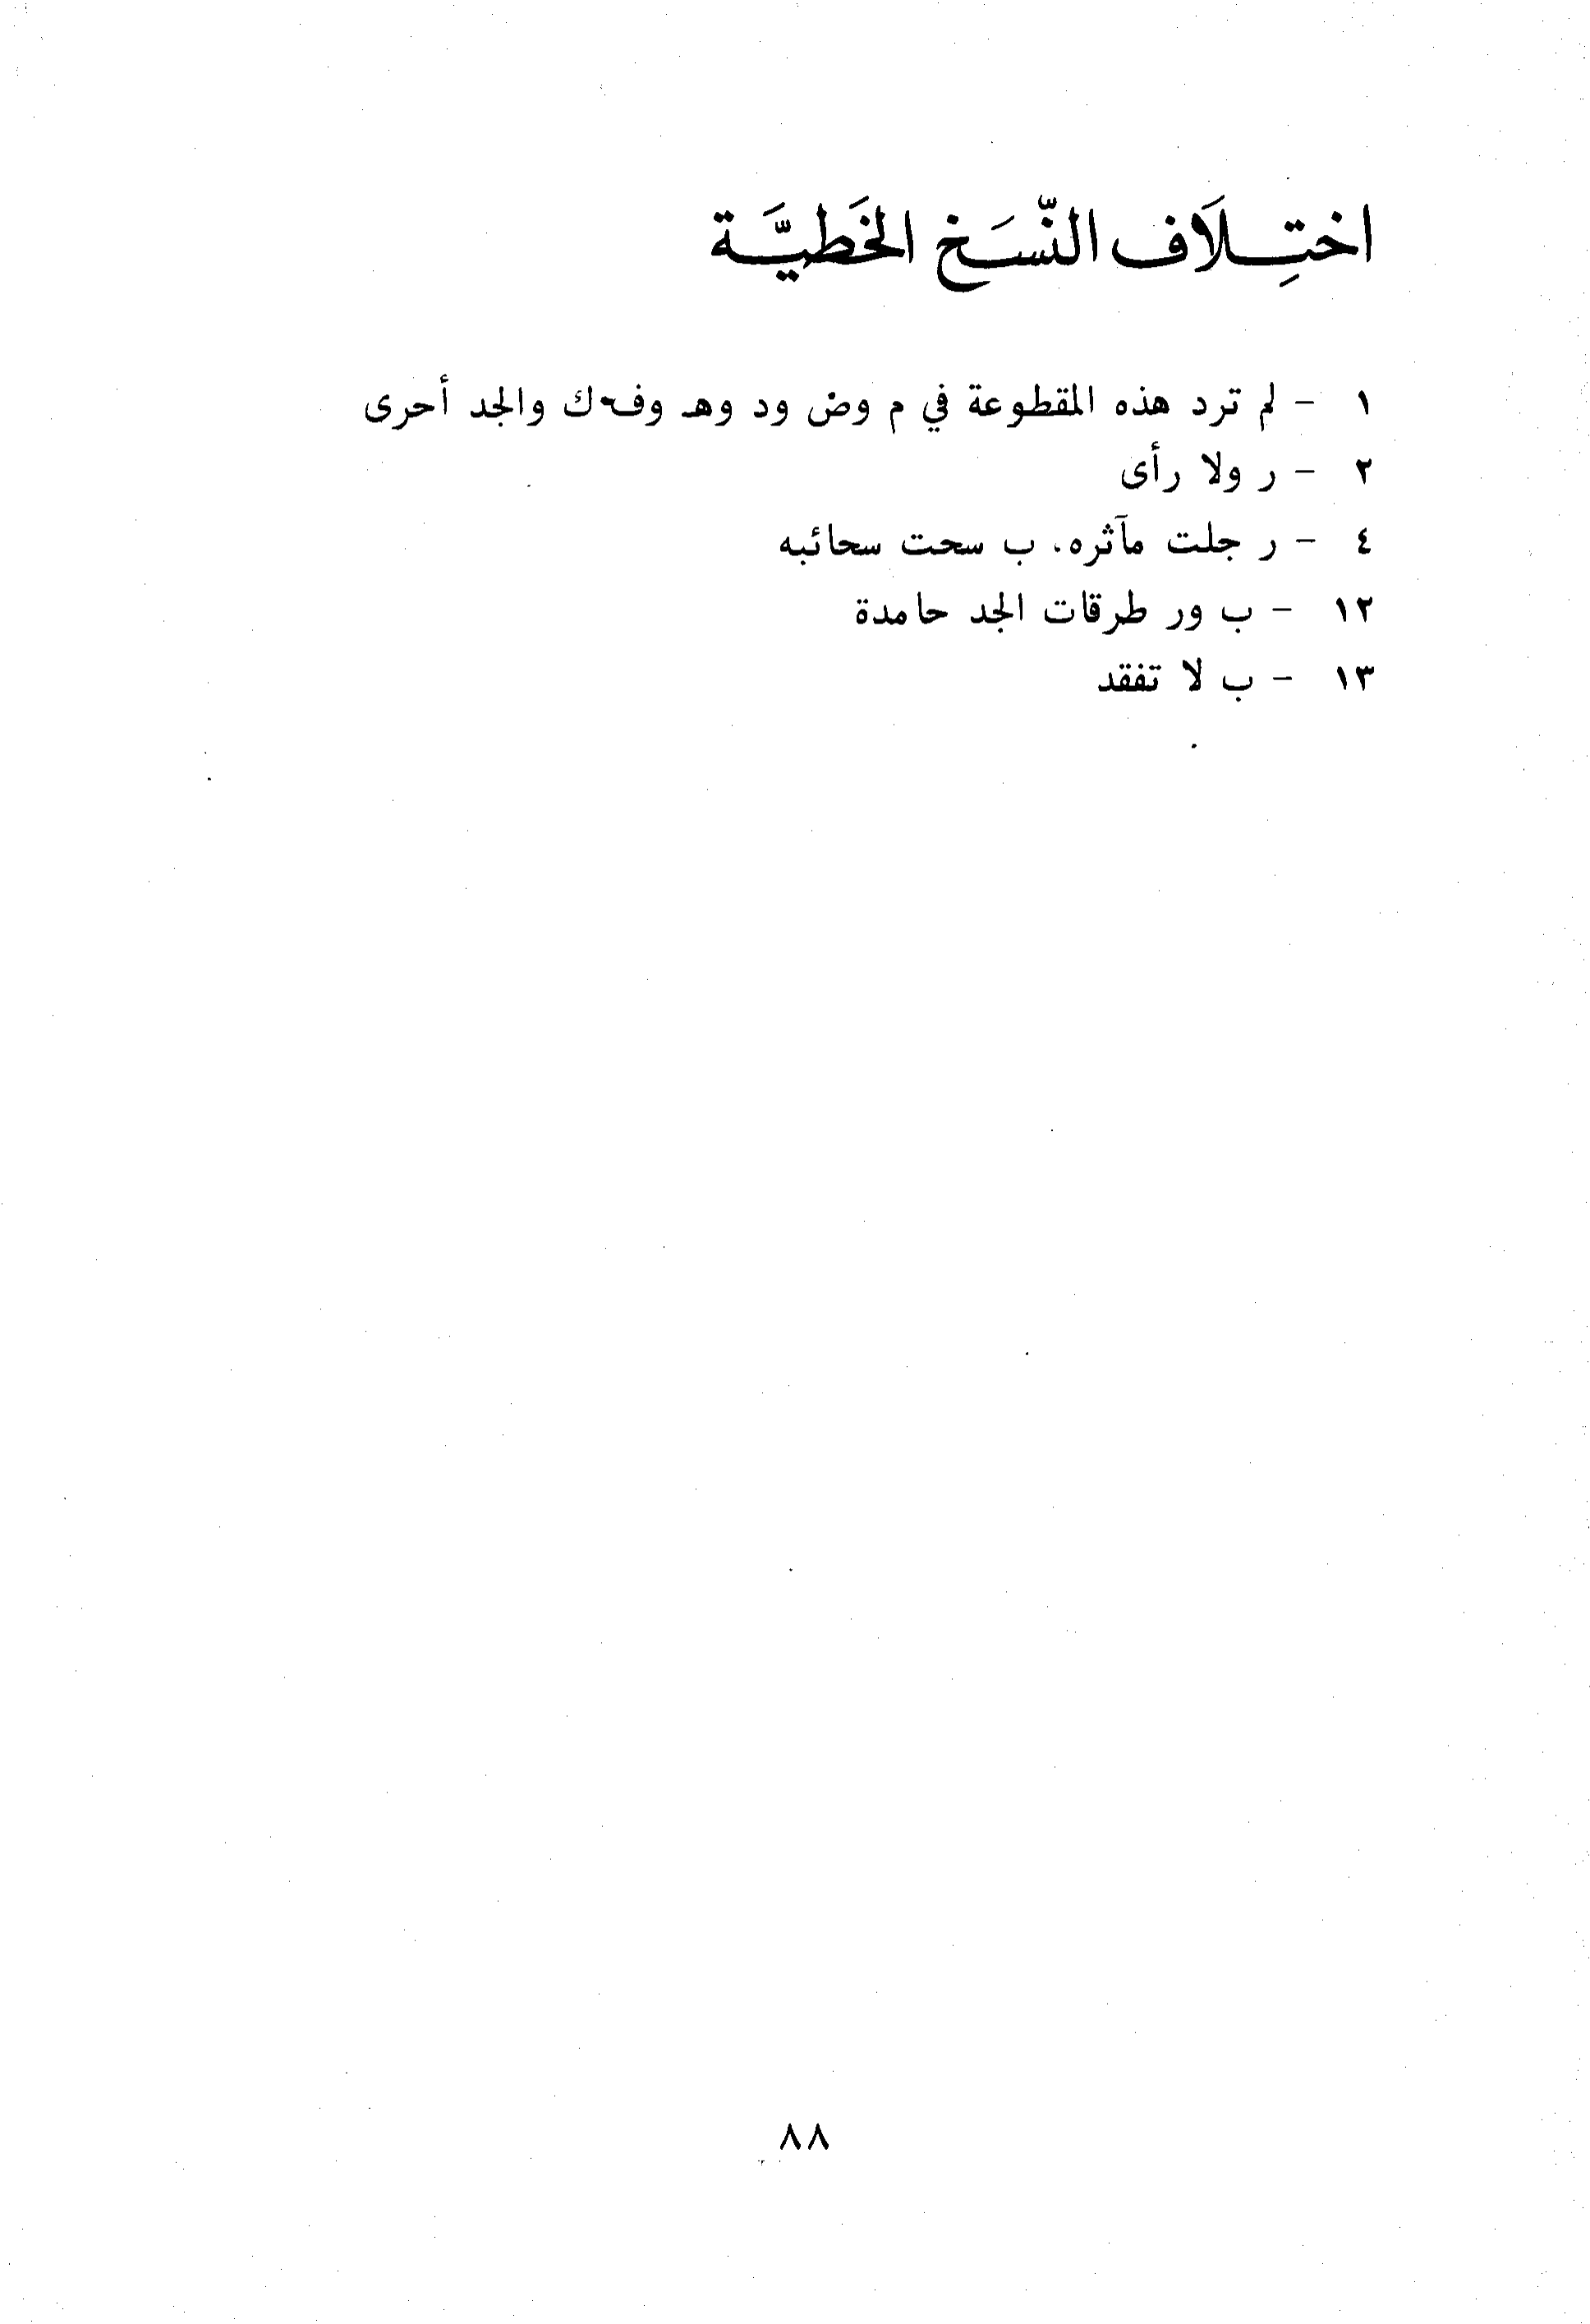 اختِلَاف النّسَخ الخَطيَّة
١ - لم ترد هذه المقطوعة في م وض ود وهـ وف ك والجد أحرى
٢ - ر ولا رأى
٤ - ر جلت مآثره. ب سحت سحائبه
١٢ - ب ور طرقات الجد حامدة
١٣ - ب لا تفقد
٨٨